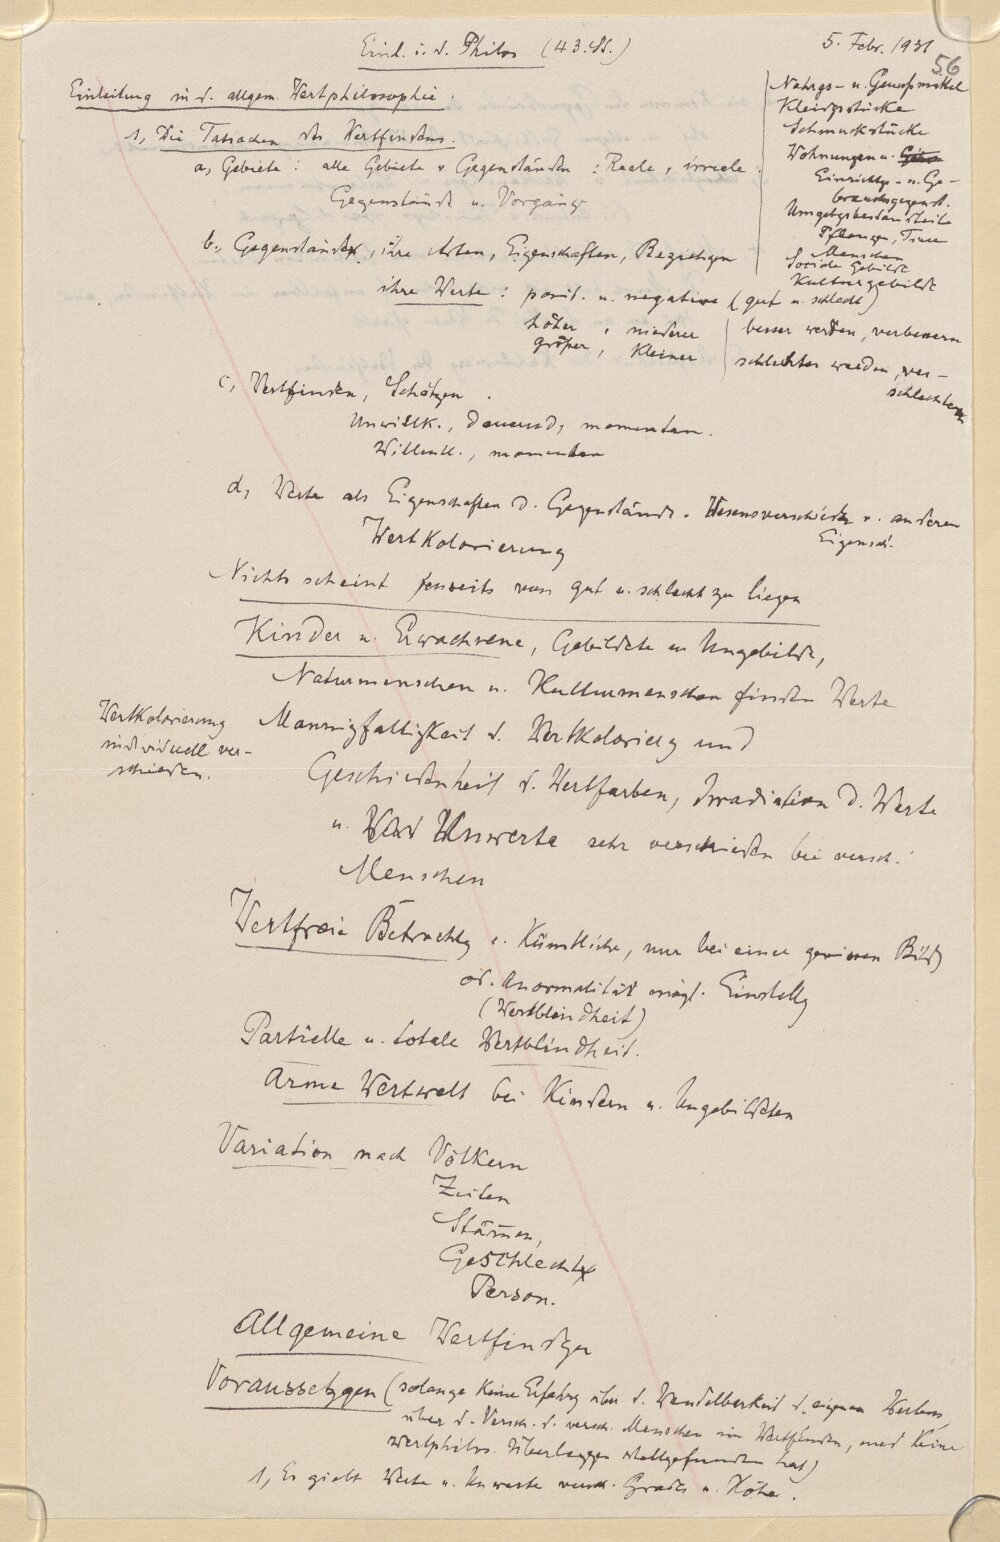 Einl. i. d. Philos (43. St.)
5. Febr. 1931
56
Einleitung in d. allgem. Wertphilosophie.
1, Die Tatsachen des Wertfindens.
a, Gebiete: alle Gebiete v Gegenständen: Reale, irreale
Gegenstände u. Vorgänge
b, Gegenstände, ihre Arten, Eigenschaften, Beziehgen
ihre Werte: posit. u. negative (gut u. schlecht)
höher, niederer
größer, kleiner
besser werden, verbessern
schlechter werden, ver-
schlechtern
Nahrgs- u. Genußmittel
Kleidgsstücke
Schmuckstücke
Wohnungen u.
Einrichtgs- u. Ge-
brauchsgegenst.
Umgebgsbestandteile
Pflanzen, Tiere
Menschen
Soziale Gebilde
Kulturgebilde
c, Wertfinden, Schätzen.
Unwillk., dauernd, momentan.
Willentl., momentan
d, Werte als Eigenschaften d. Gegenstände. Wesensverschieden v. anderen
Eigensch.
Wertkolorierung
Nichts scheint jenseits von gut u. schlecht zu liegen
Kinder u. Erwachsene, Gebildete u Ungebildete,
Naturmenschen u. Kulturmenschen finden Werte
Wertkolorierung
individuell ver-
schieden.
Mannigfaltigkeit d. Wertkolorierg und
Geschiedenheit d. Wertfarben, Irradiation d. Werte
u. Unwerte sehr verschieden bei versch.
Menschen
Wertfreie Betrachtg e. Künstliche, nur bei einer gewissen Bildg
od. Anormalität mögl. Einstellg
(Wertblindheit)
Partielle u. totale Wertblindheit.
Arme Wertwelt bei Kindern u. Ungebildeten
Variation nach Völkern
Zeiten
Stämen,
Geschlecht
Person.
Allgemeine Wertfindgen
Voraussetzgen (solange keine Erfahrg über d. Wandelbarkeit d. eigenen Wertens,
über d. Versch. d. versch. Menschen im Wertfinden, und keine
wertphilos. Überleggen stattgefunden hat)
1, Es giebt Werte u. Unwerte versch. Grades u. Höhe.